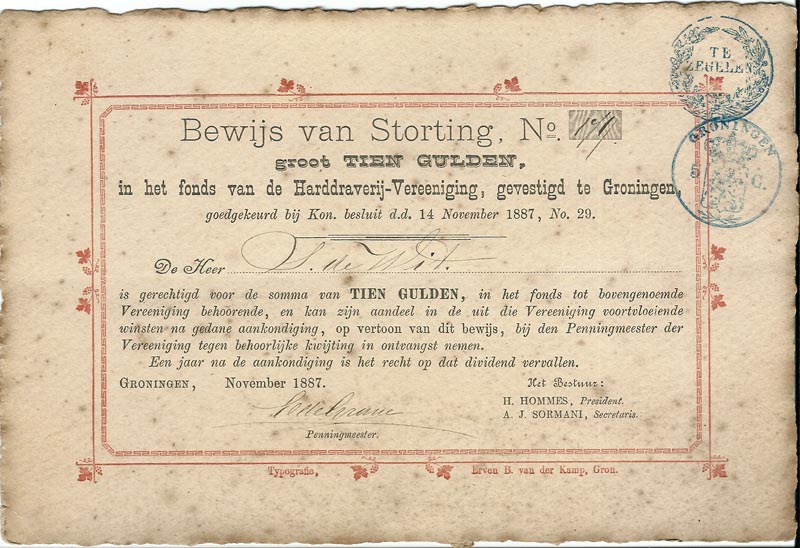 TE
ZEGELEN
GRONINGEN
5 G.
Bewijs van Storting, No.
groot TIEN GULDEN,
in het fonds van de Harddraverij-Vereeniging, gevestigd te Groningen,
goedgekeurd bij Kon. besluit d.d. 14 November 1887, No. 29.
De Heer S. de Wit.
is gerechtigd voor de somma van TIEN GULDEN, in het fonds tot bovengenoemde
Vereeniging behoorende, en kan zijn aandeel in de uit die Vereeniging voortvloeiende
winsten na gedane aankondiging, op vertoon van dit bewijs, bij den Penningmeester der
Vereeniging tegen behoorlijke kwijting in ontvangst nemen.
Een jaar na de aankondiging is het recht op dat dividend vervallen.
GRONINGEN, November 1887.
Het Bestuur:
H. HOMMES, President.
A. J. SORMANI, Secretaris.
Penningmeester.
Typografie, Erven B. van der Kamp, Gron.